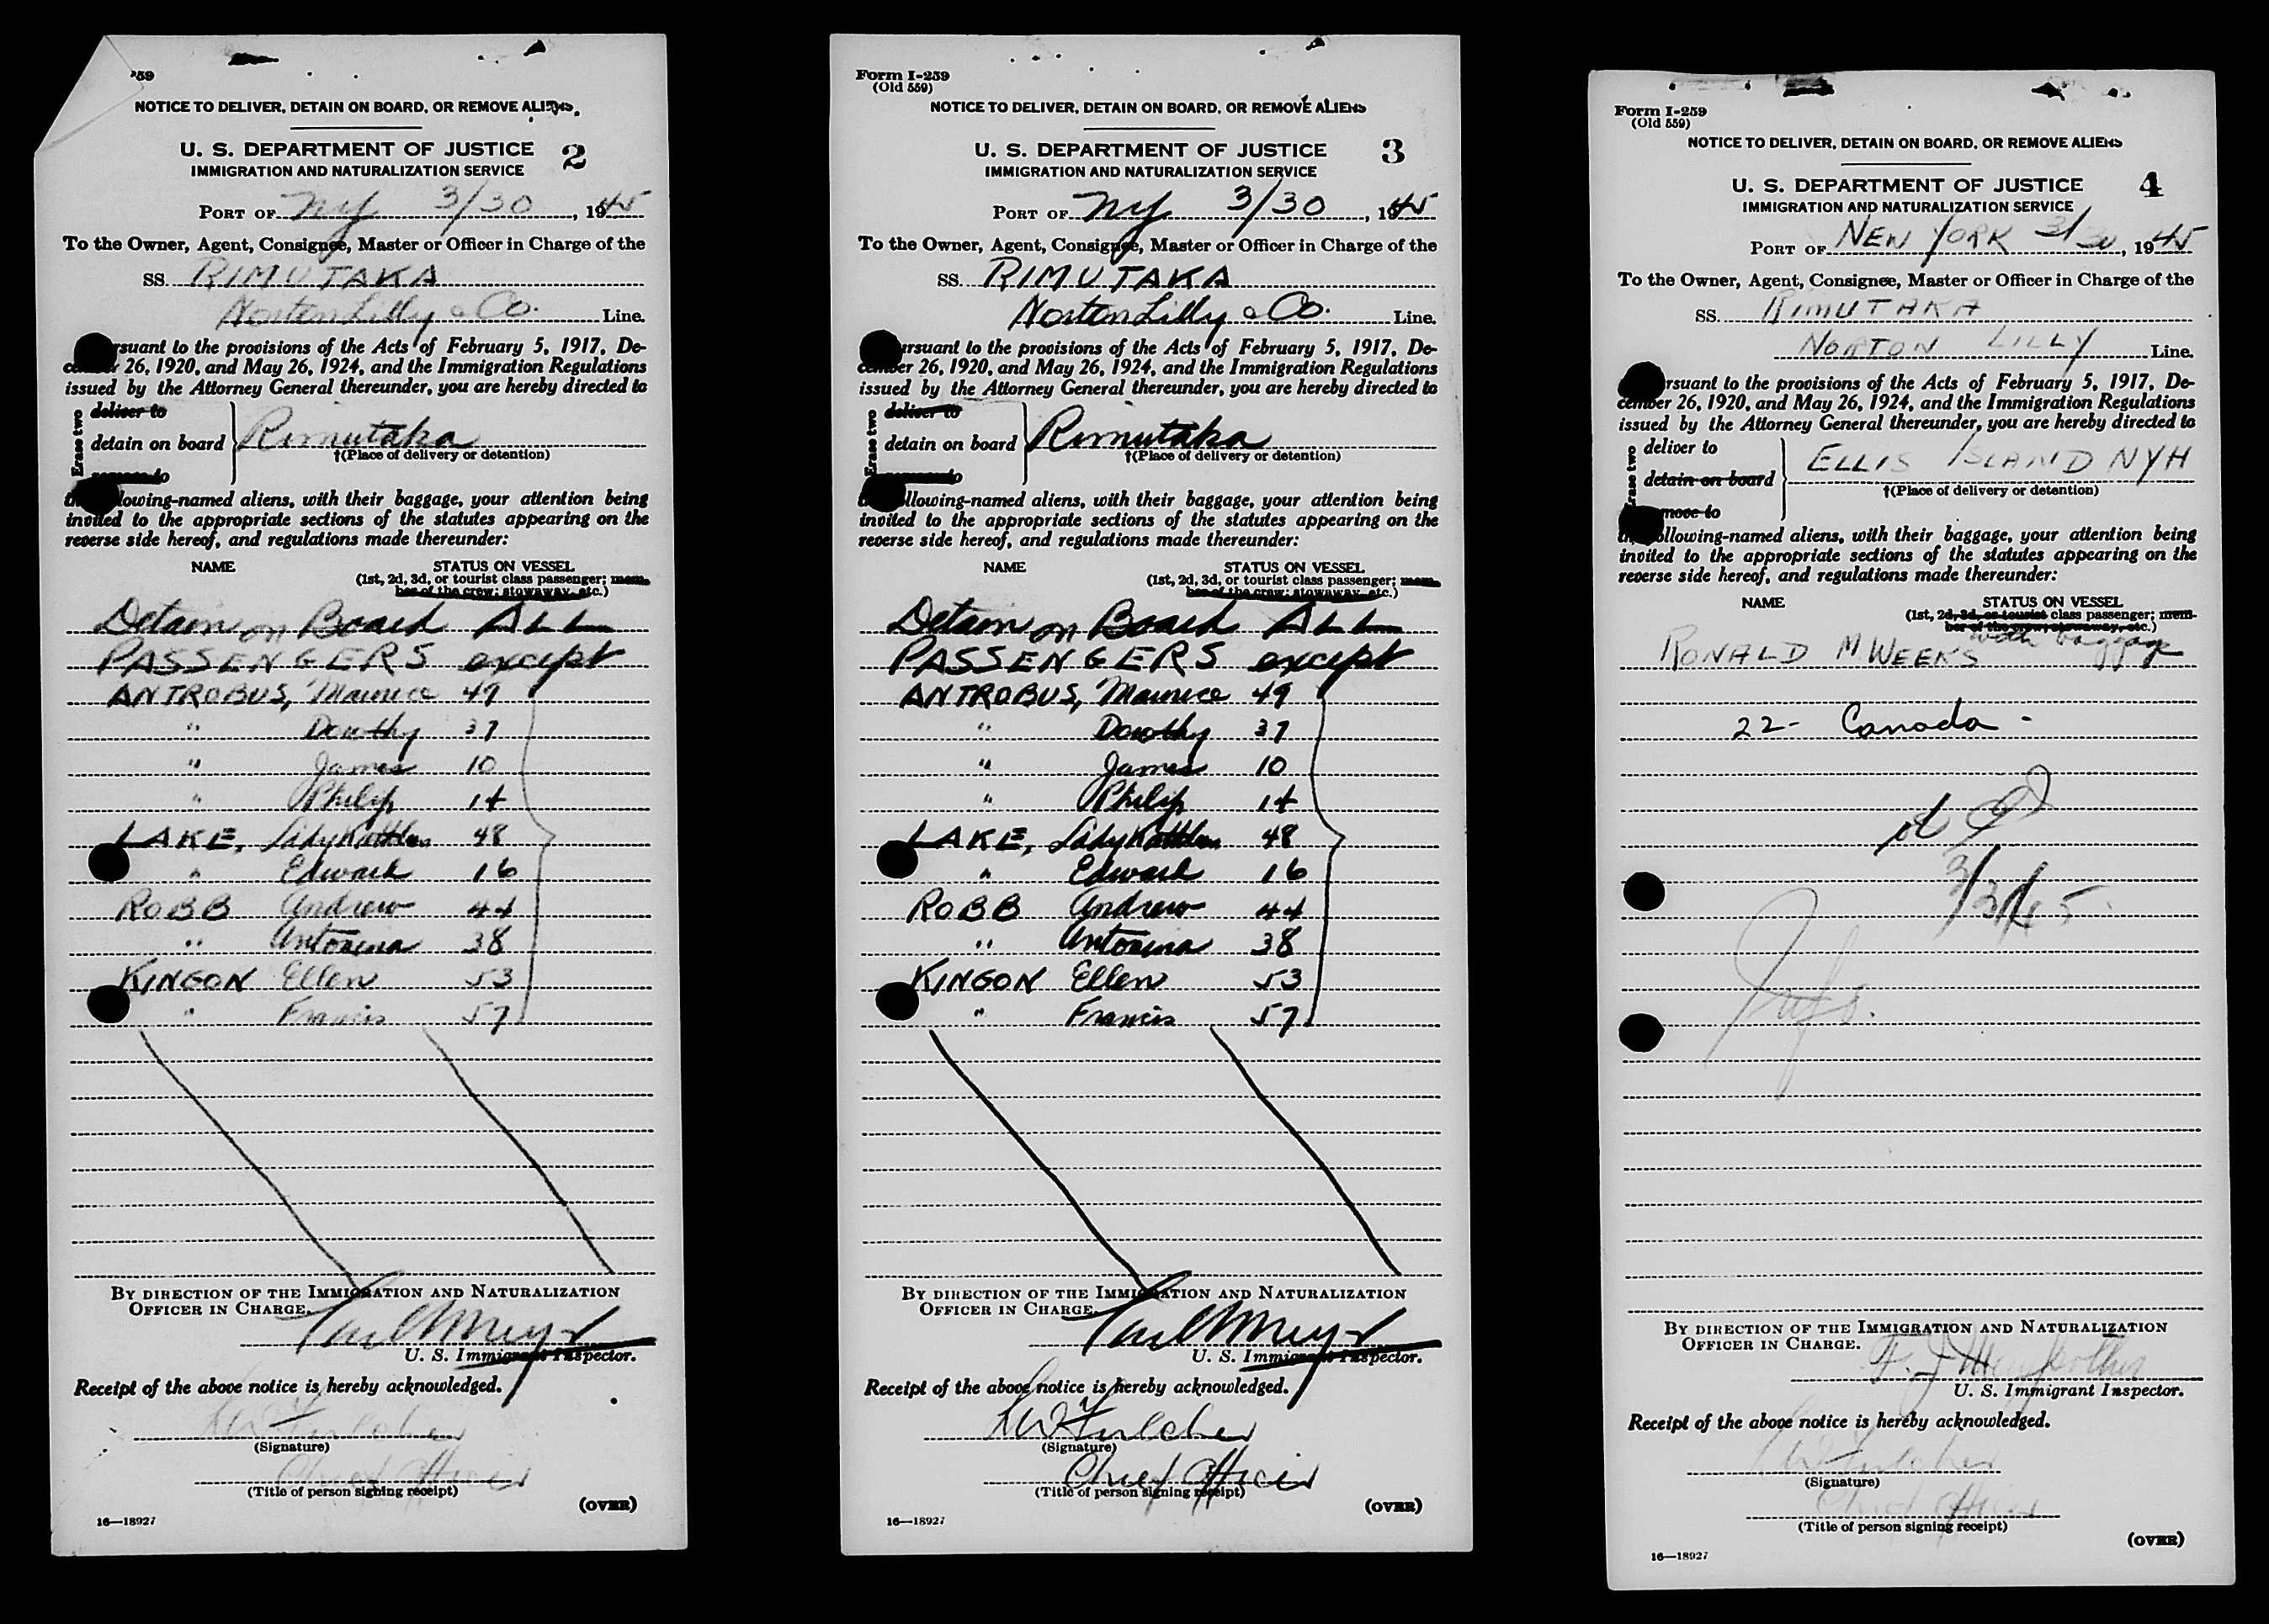 259
NOTICE TO DELIVER, DETAIN ON BOARD, OR REMOVE ALIENS
U. S. DEPARTMENT OF JUSTICE 2
IMMIGRATION AND NATURALIZATION SERVICE
PORT OF NY 3/30, 1945
To the Owner, Agent, Consignee, Master or Officer in Charge of the
SS. RIMUTAKA
Norton Lilly & Co. Line.
rsuant to the provisions of the Acts of February 5, 1917, De-
cember 26, 1920, and May 26, 1924, and the Immigration Regulations
issued by the Attorney General thereunder, you are hereby directed to
Erase two
deliver to
detain on board Rimutaka
†(Place of delivery or detention)
remove to
the following-named aliens, with their baggage, your attention being
invited to the appropriate sections of the statutes appearing on the
reverse side hereof, and regulations made thereunder:
NAME STATUS ON VESSEL
(1st, 2d, 3d, or tourist class passenger; mem-
ber of the crew; stowaway, etc.)
Detain on Board ALL
PASSENGERS except
ANTROBUS, Maurice 49
" Dorothy 37
" James 10
" Philip 14
LAKE, Lady Kathleen 48
" Edward 16
ROBB Andrew 44
" Antonina 38
KINGON Ellen 53
" Francis 57
BY DIRECTION OF THE IMMIGRATION AND NATURALIZATION
OFFICER IN CHARGE.
U. S. Immigrant Inspector.
Receipt of the above notice is hereby acknowledged.
LW Fulcher
(Signature)
Chief Officer
(Title of person signing receipt)
(OVER)
16—18927
Form I-259
(Old 559)
NOTICE TO DELIVER, DETAIN ON BOARD, OR REMOVE ALIENS
U. S. DEPARTMENT OF JUSTICE 3
IMMIGRATION AND NATURALIZATION SERVICE
PORT OF NY 3/30, 1945
To the Owner, Agent, Consignee, Master or Officer in Charge of the
SS. RIMUTAKA
Norton Lilly & Co. Line.
ursuant to the provisions of the Acts of February 5, 1917, De-
cember 26, 1920, and May 26, 1924, and the Immigration Regulations
issued by the Attorney General thereunder, you are hereby directed to
Erase two
deliver to
detain on board Rimutaka
†(Place of delivery or detention)
remove to
the following-named aliens, with their baggage, your attention being
invited to the appropriate sections of the statutes appearing on the
reverse side hereof, and regulations made thereunder:
NAME STATUS ON VESSEL
(1st, 2d, 3d, or tourist class passenger; mem-
ber of the crew; stowaway, etc.)
Detain on Board ALL
PASSENGERS except
ANTROBUS, Maurice 49
" Dorothy 37
" James 10
" Philip 14
LAKE, Lady Kathleen 48
" Edward 16
ROBB Andrew 44
" Antonina 38
KINGON Ellen 53
" Francis 57
BY DIRECTION OF THE IMMIGRATION AND NATURALIZATION
OFFICER IN CHARGE.
U. S. Immigrant Inspector.
Receipt of the above notice is hereby acknowledged.
LW Fulcher
(Signature)
Chief Officer
(Title of person signing receipt)
(OVER)
16—18927
Form I-259
(Old 559)
NOTICE TO DELIVER, DETAIN ON BOARD, OR REMOVE ALIENS
U. S. DEPARTMENT OF JUSTICE 4
IMMIGRATION AND NATURALIZATION SERVICE
PORT OF NEW YORK 3/30, 1945
To the Owner, Agent, Consignee, Master or Officer in Charge of the
SS. RIMUTAKA
NORTON LILLY Line.
rsuant to the provisions of the Acts of February 5, 1917, De-
cember 26, 1920, and May 26, 1924, and the Immigration Regulations
issued by the Attorney General thereunder, you are hereby directed to
Erase two
deliver to
detain on board ELLIS ISLAND NYH
†(Place of delivery or detention)
remove to
the following-named aliens, with their baggage, your attention being
invited to the appropriate sections of the statutes appearing on the
reverse side hereof, and regulations made thereunder:
NAME STATUS ON VESSEL
(1st, 2d, 3d, or tourist class passenger; mem-
ber of the crew; stowaway, etc.)
RONALD M WEEKS with baggage
22 - Canada -
BY DIRECTION OF THE IMMIGRATION AND NATURALIZATION
OFFICER IN CHARGE.
U. S. Immigrant Inspector.
Receipt of the above notice is hereby acknowledged.
LW Fulcher
(Signature)
Chief Officer
(Title of person signing receipt)
(OVER)
16—18927